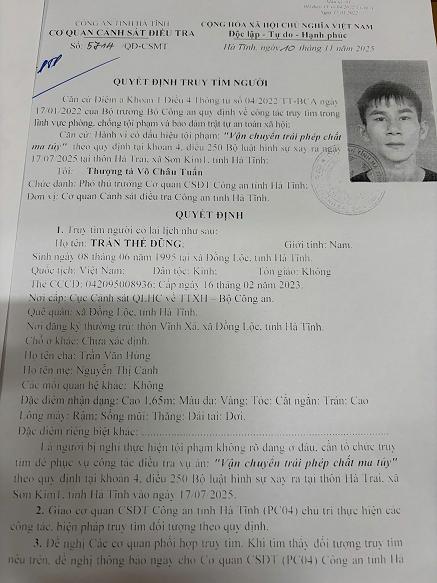 CÔNG AN TỈNH HÀ TĨNH
CƠ QUAN CẢNH SÁT ĐIỀU TRA
Số: 5714 /QĐ-CSMT
CỘNG HÒA XÃ HỘI CHỦ NGHĨA VIỆT NAM
Độc lập - Tự do - Hạnh phúc
Hà Tĩnh, ngày 10 tháng 11 năm 2025
QUYẾT ĐỊNH TRUY TÌM NGƯỜI
Căn cứ Điểm a Khoản 1 Điều 4 Thông tư số 04/2022/TT-BCA ngày
17/01/2022 của Bộ trưởng Bộ Công an quy định về công tác truy tìm trong
lĩnh vực phòng, chống tội phạm và bảo đảm trật tự an toàn xã hội;
Căn cứ: Hành vi có dấu hiệu tội phạm: "Vận chuyển trái phép chất
ma túy" theo quy định tại khoản 4, điều 250 Bộ luật hình sự xảy ra ngày
17/07/2025 tại thôn Hà Trai, xã Sơn Kim1, tỉnh Hà Tĩnh;
Tôi: Thượng tá Võ Châu Tuấn
Chức danh: Phó thủ trưởng Cơ quan CSĐT Công an tỉnh Hà Tĩnh;
Đơn vị: Cơ quan Cảnh sát điều tra Công an tỉnh Hà Tĩnh.
QUYẾT ĐỊNH
1. Truy tìm người có lai lịch như sau:
Họ tên: TRẦN THẾ DŨNG; Giới tính: Nam.
Sinh ngày 08 tháng 06 năm 1995 tại xã Đồng Lộc, tỉnh Hà Tĩnh.
Quốc tịch: Việt Nam; Dân tộc: Kinh; Tôn giáo: Không
Thẻ CCCD: 042095008936; Cấp ngày 16 tháng 02 năm 2023.
Nơi cấp: Cục Cảnh sát QLHC về TTXH – Bộ Công an.
Quê quán: xã Đồng Lộc, tỉnh Hà Tĩnh.
Nơi đăng ký thường trú: thôn Vĩnh Xá, xã Đồng Lộc, tỉnh Hà Tĩnh.
Chỗ ở khác: Chưa xác định.
Họ tên cha: Trần Văn Hùng
Họ tên mẹ: Nguyễn Thị Canh
Các mối quan hệ khác: Không
Đặc điểm nhận dạng: Cao 1,65m; Màu da: Vàng; Tóc: Cắt ngắn; Trán: Cao
Lông mày: Rậm; Sống mũi: Thẳng; Dái tai: Dơi.
Đặc điểm riêng biệt khác:
Là người bị nghi thực hiện tội phạm không rõ đang ở đâu, cần tổ chức truy
tìm để phục vụ công tác điều tra vụ án: "Vận chuyển trái phép chất ma túy"
theo quy định tại khoản 4, điều 250 Bộ luật hình sự xảy ra tại thôn Hà Trai, xã
Sơn Kim1, tỉnh Hà Tĩnh vào ngày 17/07/2025.
2. Giao cơ quan CSĐT Công an tỉnh Hà Tĩnh (PC04) chủ trì thực hiện các
công tác, biện pháp truy tìm đối tượng theo quy định.
3. Đề nghị Các cơ quan phối hợp truy tìm. Khi tìm thấy đối tượng truy tìm
nêu trên, đề nghị thông báo ngay cho Cơ quan CSĐT (PC04) Công an tỉnh Hà